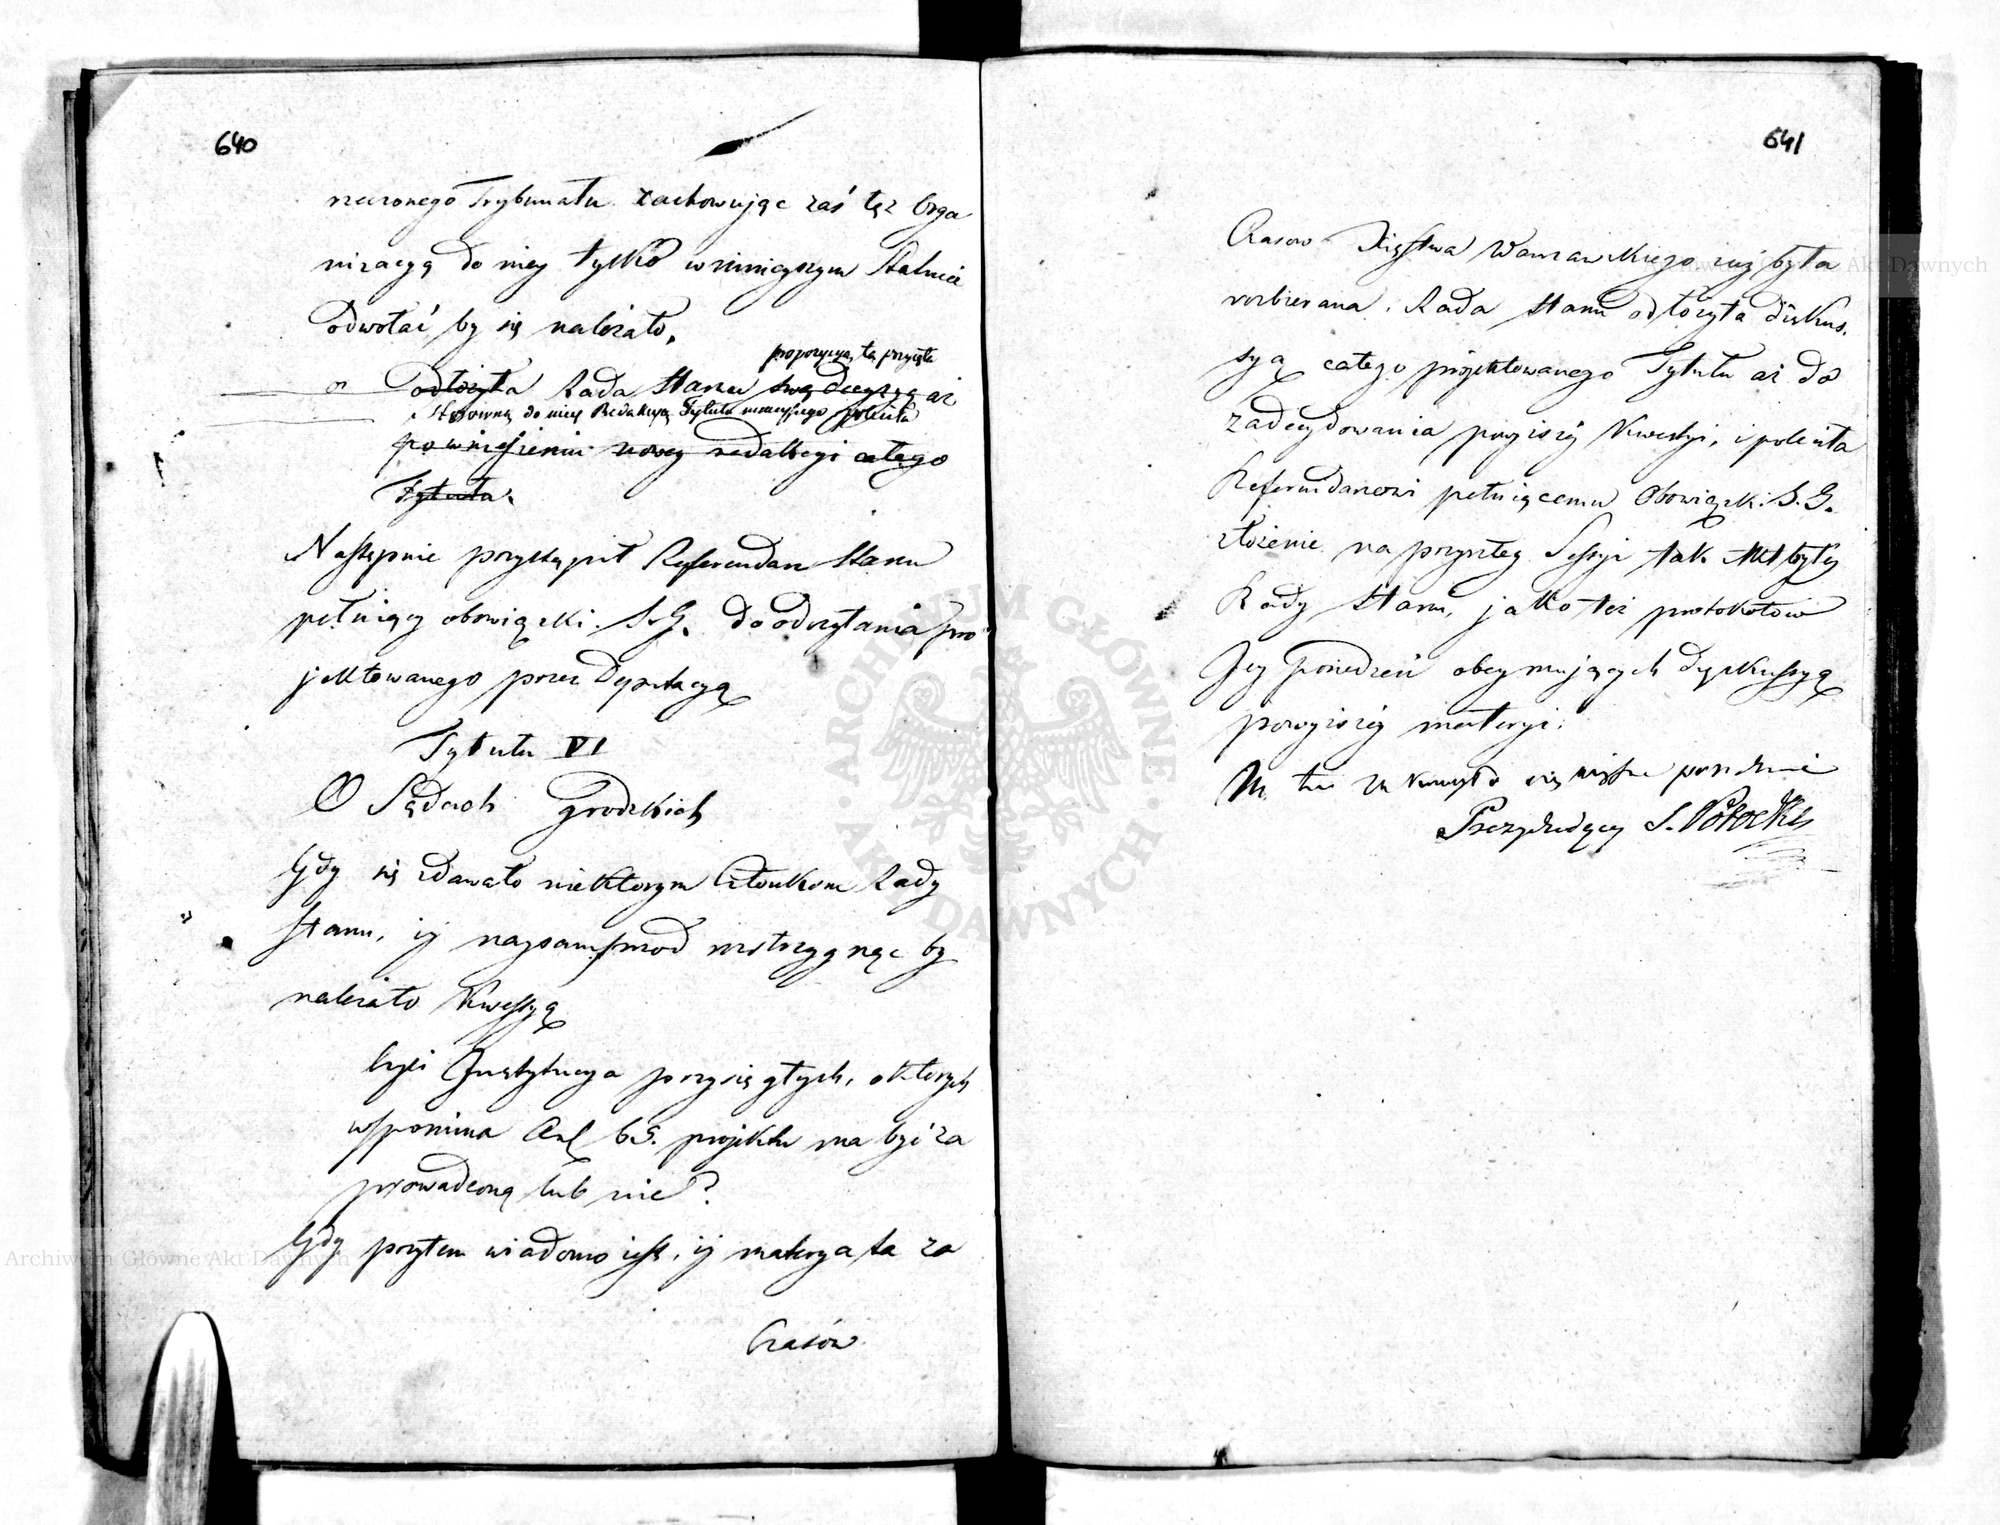 640
rzeczonego Trybunału. Zachowując zaś tęż Orga
nizacyą do niey tylko w ninieyszym Statucie
Odwołać by się należało.
propozycyą tą przyięła
odłożyła Rada Stanu swą decyzyą aż
Stosowną do niey Redakcyą Tytułu poleciła
po wniesieniu nowey redakcyi całego
Tytułu.
Następnie przystąpił Referendarz Stanu
pełniący obowiązki S. G. do odczytania pro
jektowanego przez Deputacyą
Tytułu VI
O Sądach Grodzkich
Gdy się zdawało niektórym Członkom Rady
Stanu, iż naysamprzod rozstrzygnąć by
należało Kwestyą
czyli Instytucya przysięgłych, o których
wspomina Art 65. projektu ma być za
prowadzoną lub nie?
Gdy przytem wiadomo iest, iż materya ta za
Czasów
641
Czasow Xięstwa Warszawskiego iuż była
rozbierana, Rada Stanu odłożyła diskus.
syą całego projektowanego Tytułu aż do
zadecydowania powyższéy Kwestyi, i poleciła
Referendarzowi pełniącemu Obowiązki S. G.
złożenie na przyszłey Sessyi tak Akt byłey
Rady Stanu, jako też protokołów
Jey Posiedzeń obeymujących dyskussyą
powyższéy materyi.
Na tem zakończyło się ninieysze posiedzenie
Prezyduiący S. Potocki
ARCHIWUM GŁÓWNE AKT DAWNYCH
Archiwum Główne Akt Dawnych
Archiwum Główne Akt Dawnych